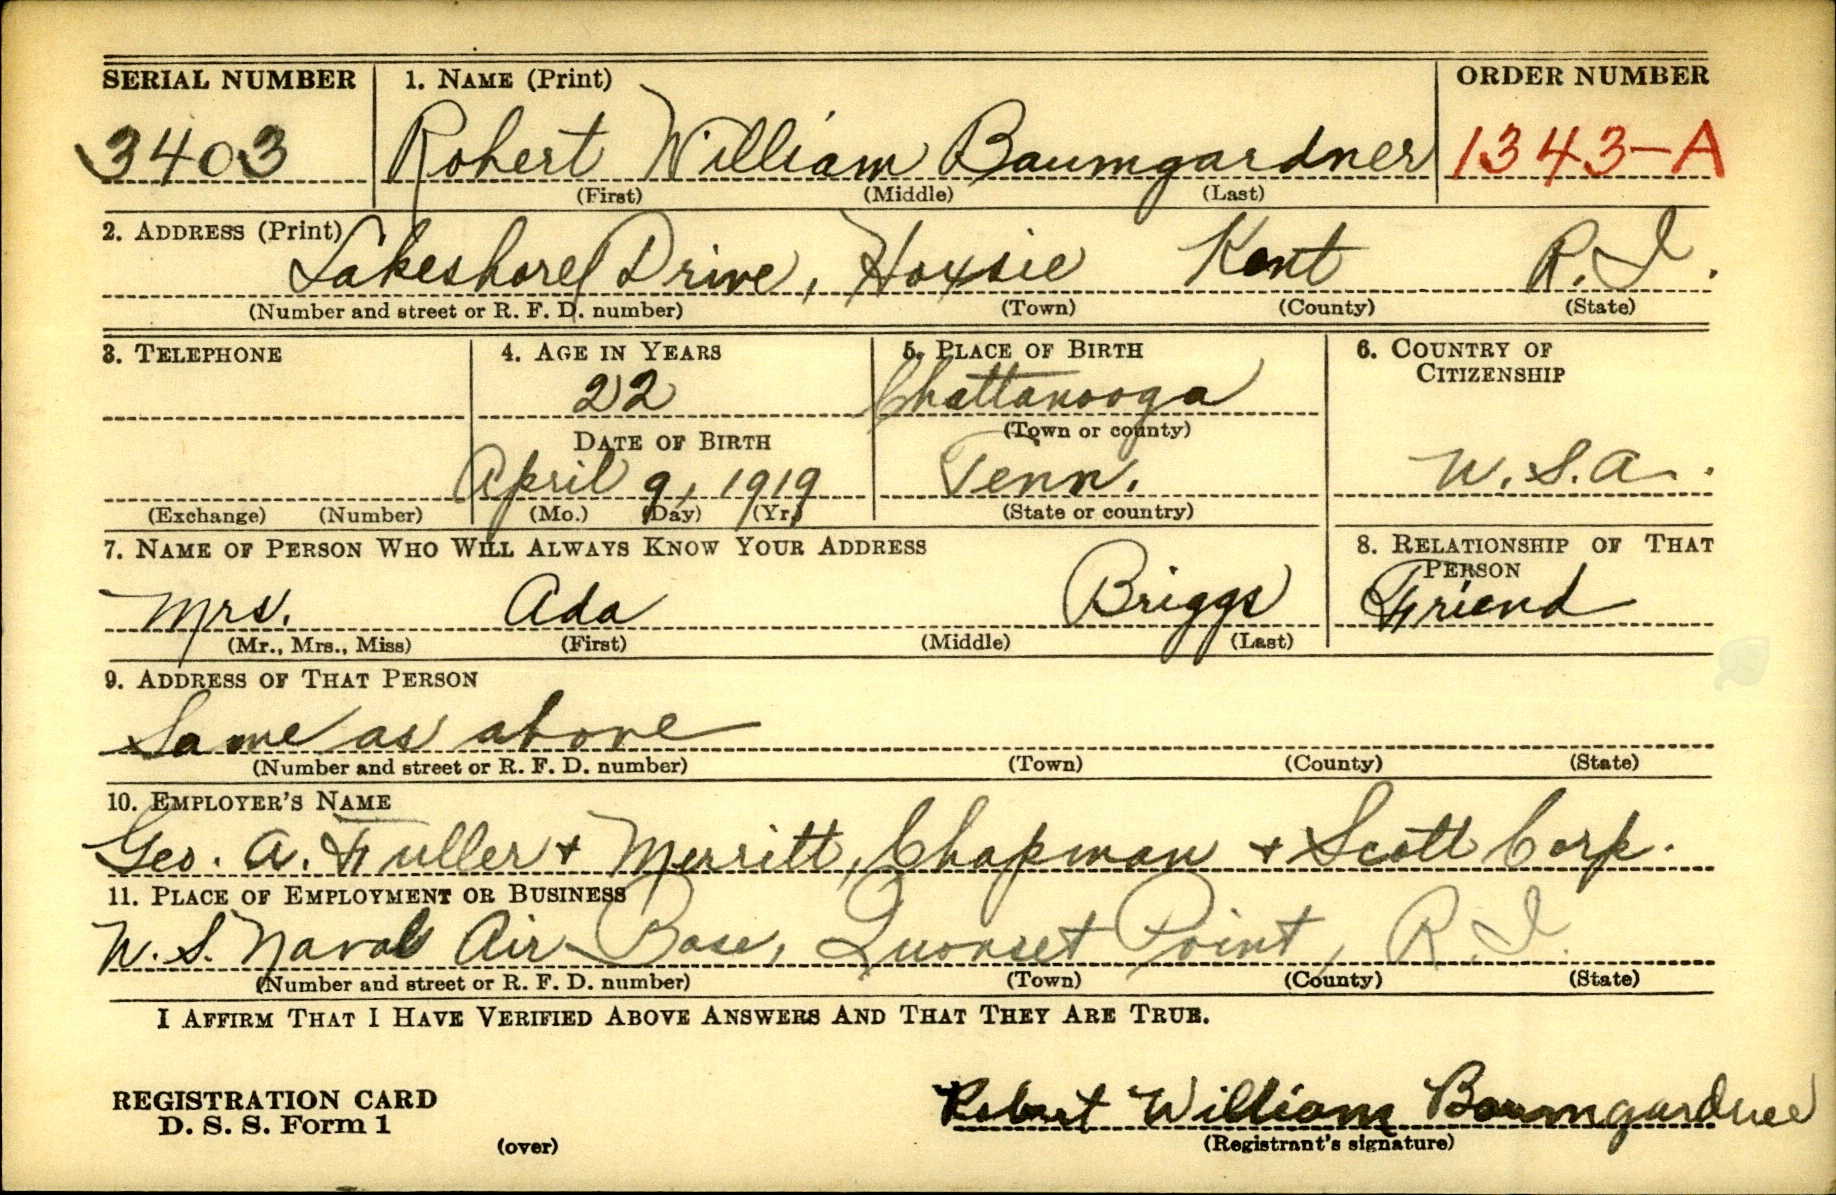 SERIAL NUMBER 1. NAME (Print) ORDER NUMBER
3403 Robert William Baumgardner 1343-A
(First) (Middle) (Last)
2. ADDRESS (Print)
Lakeshore Drive, Hoxsie Kent R.I.
(Number and street or R. F. D. number) (Town) (County) (State)
3. TELEPHONE 4. AGE IN YEARS 5. PLACE OF BIRTH 6. COUNTRY OF
CITIZENSHIP
22 Chattanooga
(Town or county)
DATE OF BIRTH
April 9, 1919 Tenn. U.S.A.
(Exchange) (Number) (Mo.) (Day) (Yr.) (State or country)
7. NAME OF PERSON WHO WILL ALWAYS KNOW YOUR ADDRESS 8. RELATIONSHIP OF THAT
PERSON
Mrs. Ada Briggs Friend
(Mr., Mrs., Miss) (First) (Middle) (Last)
9. ADDRESS OF THAT PERSON
Same as above
(Number and street or R. F. D. number) (Town) (County) (State)
10. EMPLOYER'S NAME
Geo. A. Fuller + Merritt, Chapman + Scott Corp.
11. PLACE OF EMPLOYMENT OR BUSINESS
U.S. Naval Air Base, Quonset Point, R.I.
(Number and street or R. F. D. number) (Town) (County) (State)
I AFFIRM THAT I HAVE VERIFIED ABOVE ANSWERS AND THAT THEY ARE TRUE.
REGISTRATION CARD
D. S. S. Form 1
Robert William Baumgardner
(over) (Registrant's signature)